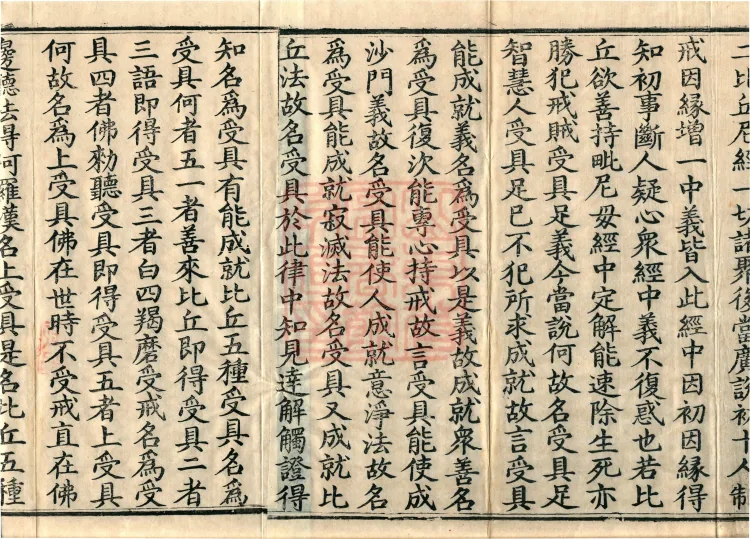 二比丘尼經一切諸犍後當廣說初十人制
戒因緣增一中義皆入此經中因初因緣得
知初事斷人疑心衆經中義不復惑也若比
丘欲善持毗尼毋經中定解能速除生死亦
勝犯戒賊受具足義今當說何故名受具足
智慧人受具足已不犯所求成就故言受具
能成就義名爲受具以是義故成就衆善名
爲受具復次能專心持戒故言受具能使成
沙門義故名受具能使人成就意淨法故名
爲受具能成就寂滅法故名受具又成就比
丘法故名受具於此律中知見達解觸證得
知名爲受具有能成就比丘五種受具名爲
受具何者五一者善來比丘即得受具二者
三語即得受具三者白四羯磨受戒名爲受
具四者佛勑聽受具即得受具五者上受具
何故名爲上受具佛在世時不受戒直在佛
邊聽法得阿羅漢名上受具是名比丘五種